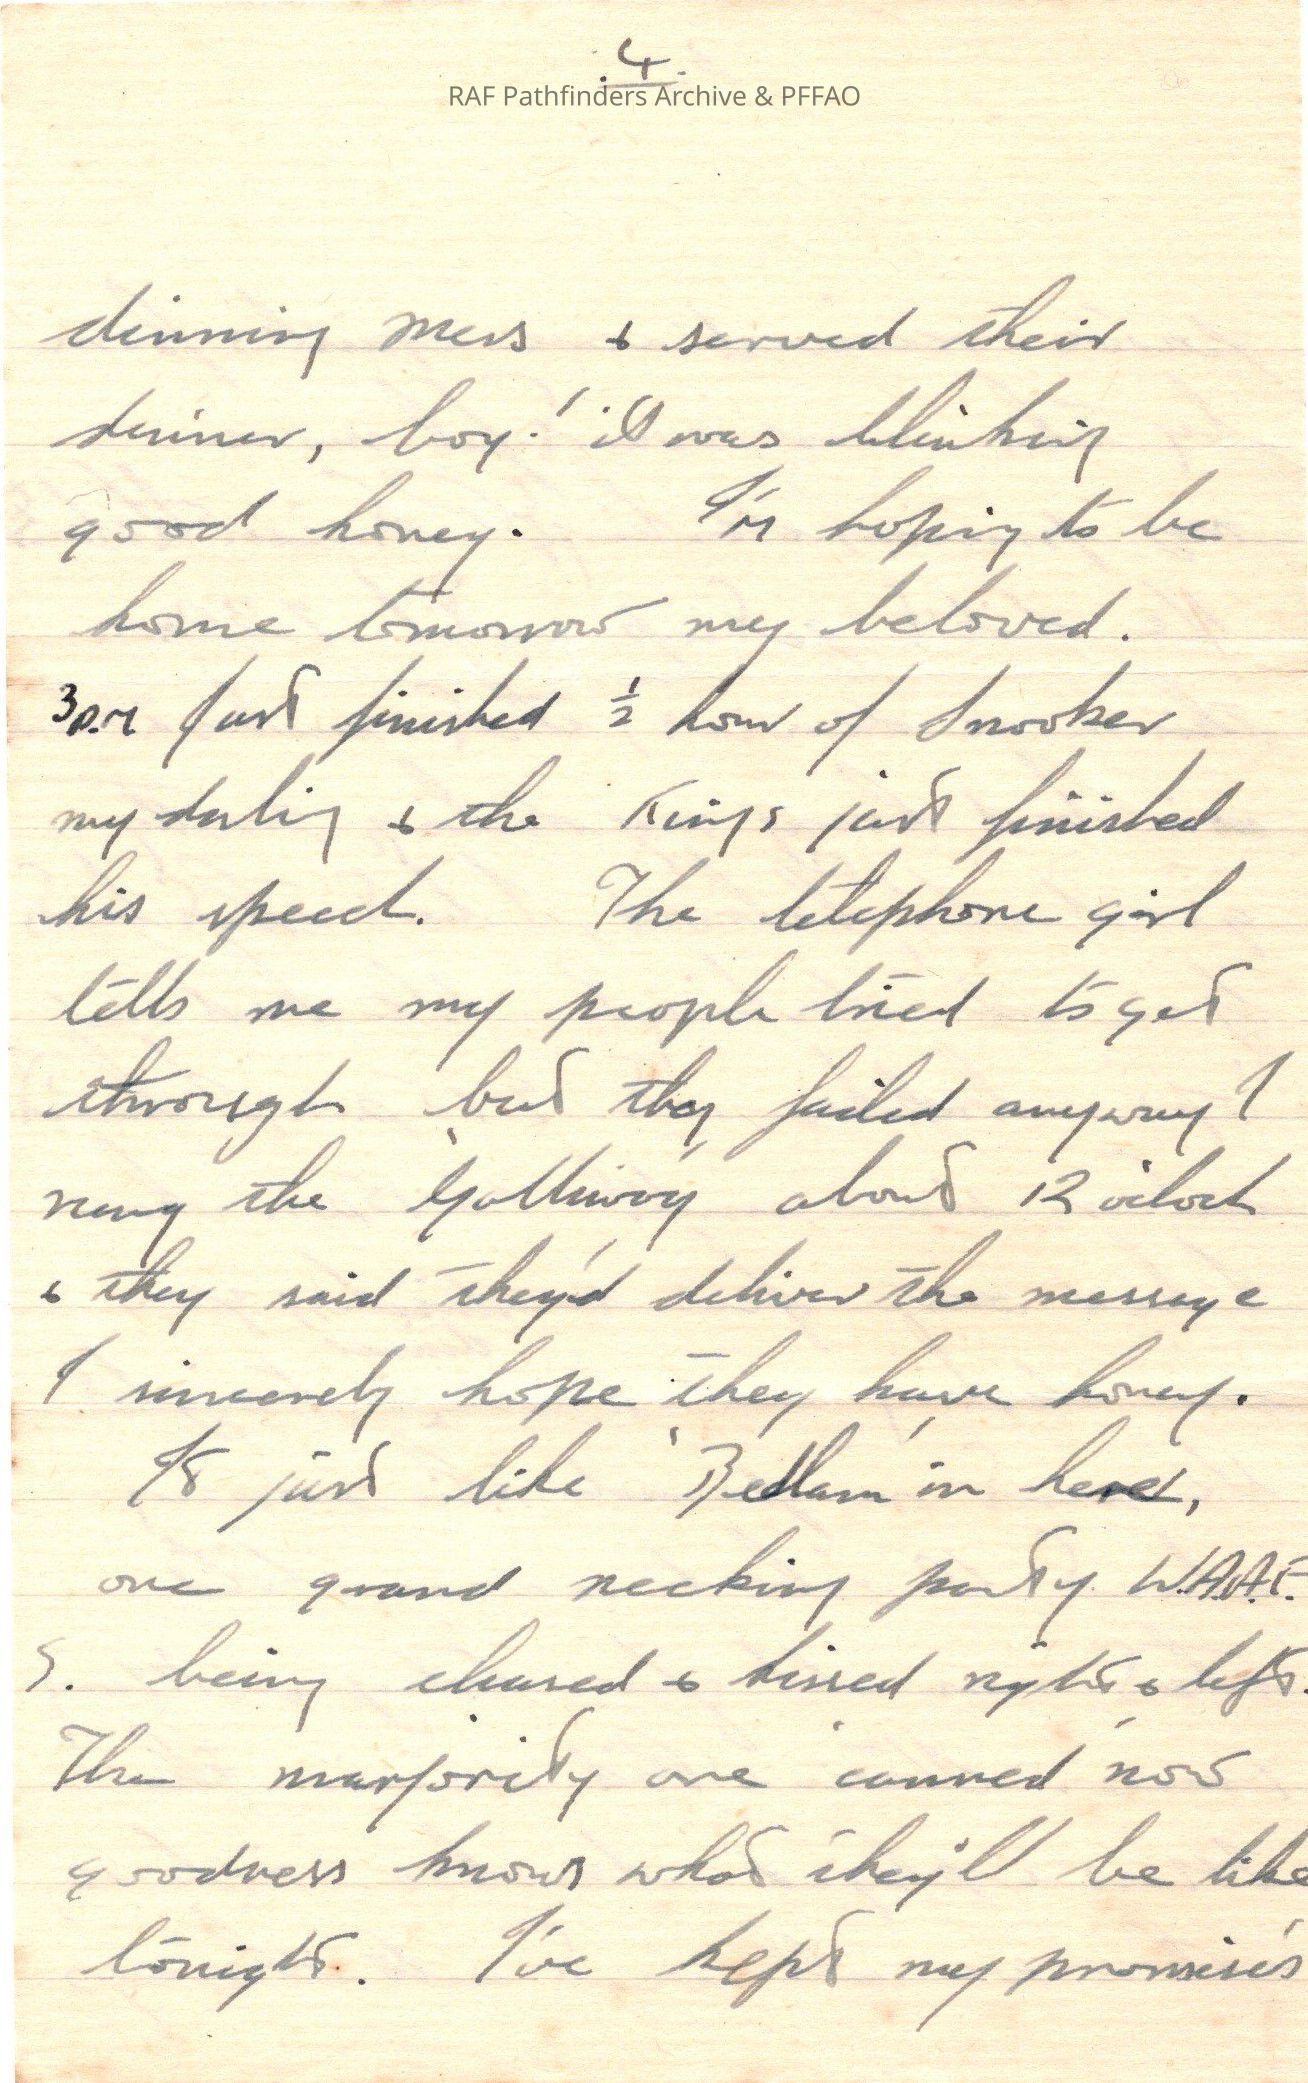 4.
RAF Pathfinders Archive & PFFAO
dinning mess & served their
dinner, boy! it was blinking
good honey. I'm hoping to be
home tomorrow my beloved.
3p.m Just finished ½ hour of snooker
my darling & the Kings just finished
his speech. The telephone girl
tells me my people tried to get
through but they failed anyway I
rung the about 12 o'clock
& they said they'd deliver the message
I sincerely hope they have honey.
It's just like 'Bedlam' in here,
one grand necking party W.A.A.F.
S. being chased & kissed right & left.
The marjority are 'canned' now
goodness knows what they'll be like
tonight. I've kept my promises